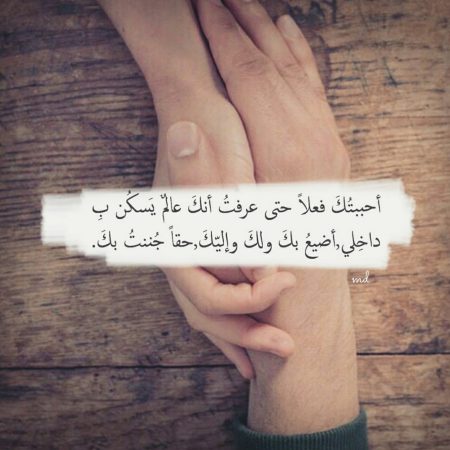 أحببتُكَ فعلاً حتى عرفتُ أنكَ عالمٌ يَسكُن بِ
داخِلي,أضيعُ بكَ ولكَ وإليّكَ,حقاً جُننتُ بكَ.
md